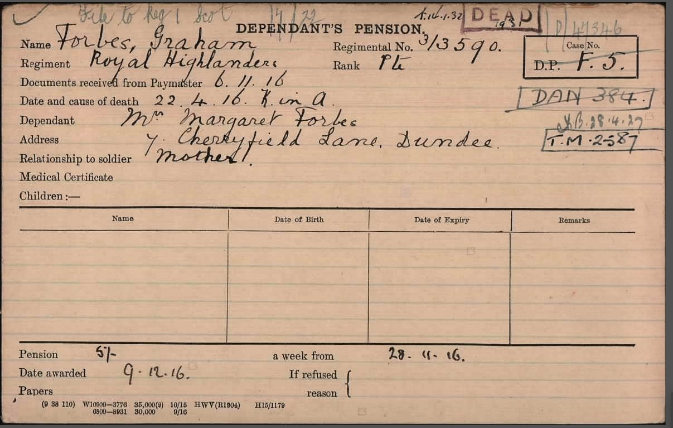 File to Reg 1 Scot 14/22
A.14.1.32 DEAD 1931 D/41346
DEPENDANT'S PENSION.
Name Forbes, Graham Regimental No. 3/3590.
Case No.
D.P. F. 5.
Regiment Royal Highlanders Rank Pte
Documents received from Paymaster 6.11.16
Date and cause of death 22.4.16. K in A.
DAN 384.
Dependant Mrs Margaret Forbes
28.4.27
Address 7, Cherryfield Lane, Dundee.
T.M.2587
Relationship to soldier Mother.
Medical Certificate
Children:—
Name Date of Birth Date of Expiry Remarks
Pension 5/- a week from 28.11.16.
Date awarded 9.12.16. If refused
Papers reason
(9 38 110) W10900—3776 35,000(9) 10/15 HWV(R1904) H15/1179
6500—8931 30,000 9/16